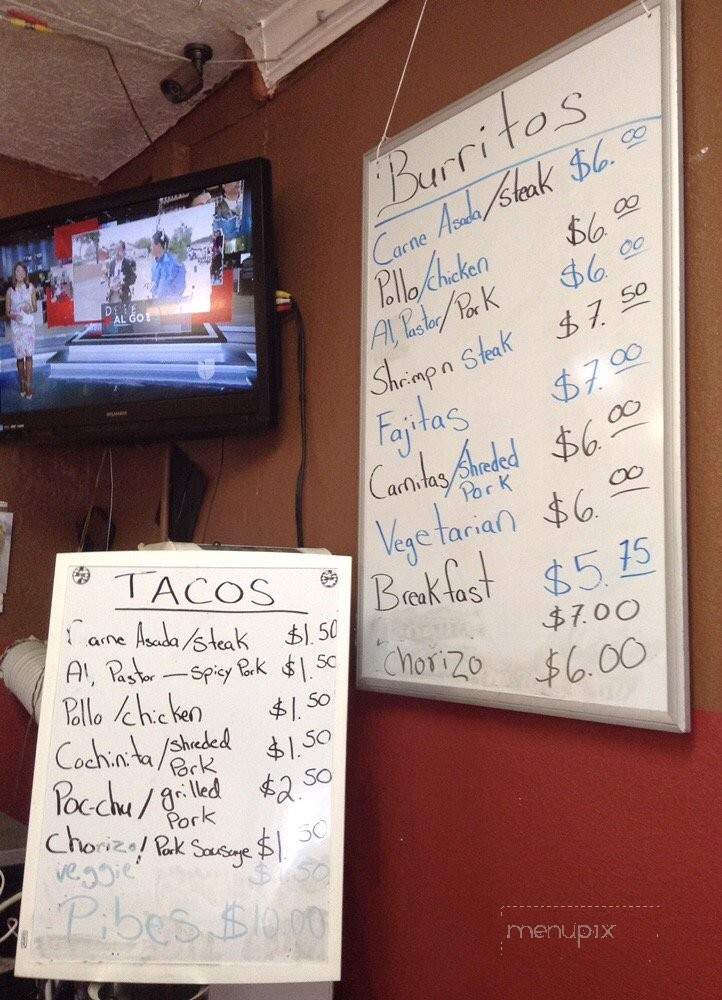 Burritos
Carne Asada/Steak $6.00
Pollo/chicken $6.00
Al, Pastor/Pork $6.00
Shrimp n Steak $7.50
Fajitas $7.00
Carnitas/Shreded Pork $6.00
Vegetarian $6.00
Breakfast $5.75
$7.00
Chorizo $6.00
AL GO
SYLVANIA
TACOS
Carne Asada/Steak $1.50
Al, Pastor — Spicy Pork $1.50
Pollo/chicken $1.50
Cochinita/Shreded Pork $1.50
Poc-chu/grilled Pork $2.50
Chorizo/Pork Sausage $1.50
veggie $1.50
Pibes $10.00
menupix